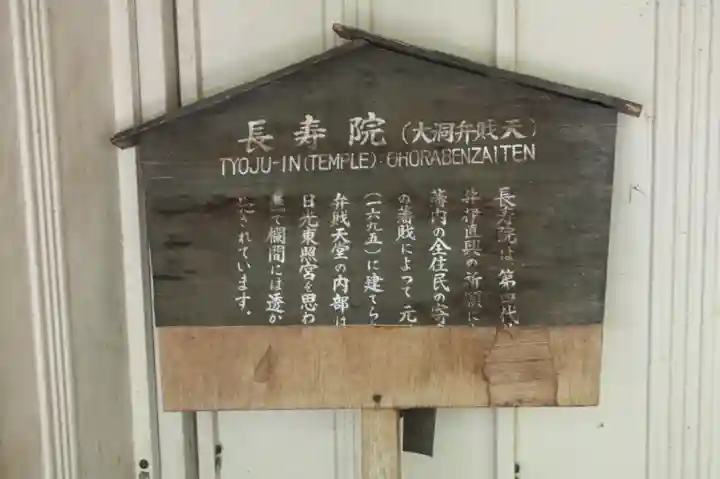 長寿院(大洞弁賎天)
TYOJU-IN(TEMPLE)・OHORABENZAITEN
長寿院は第四代
井伊直興の祈願に
藩内の全住民の寄
の蓄賎によって元
(一六九五)に建てら
弁賎天堂の内部は
日光東照宮を思わ
て欄間には透か
されています。